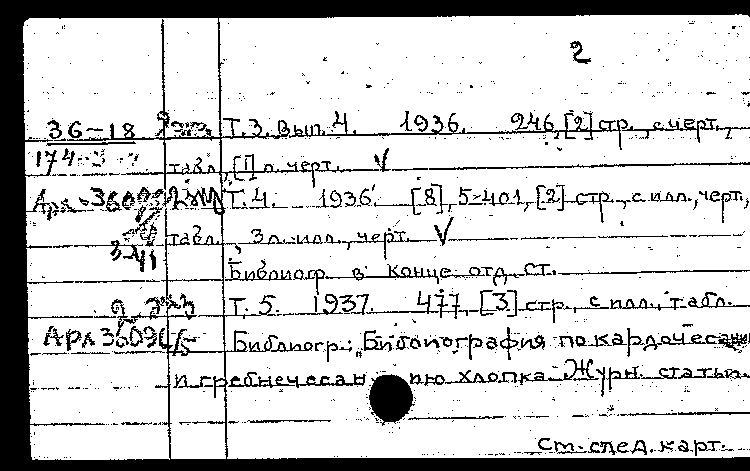 2
36-18 Т.3. Вып. 4. 1936. 246, [2] стр., с черт.,
174 табл., [1] л. черт. V
Т.4. 1936. [8], 5-401, [2] стр., с илл., черт.,
табл., 3 л. илл., черт. V
3-41
Библиогр. в конце отд. ст.
Т. 5. 1937. 477, [3] стр., с илл., табл.
Библиогр.: "Библиография по кардочесанию
и гребнечесанию хлопка. Журн. статьи.
См. след. карт.